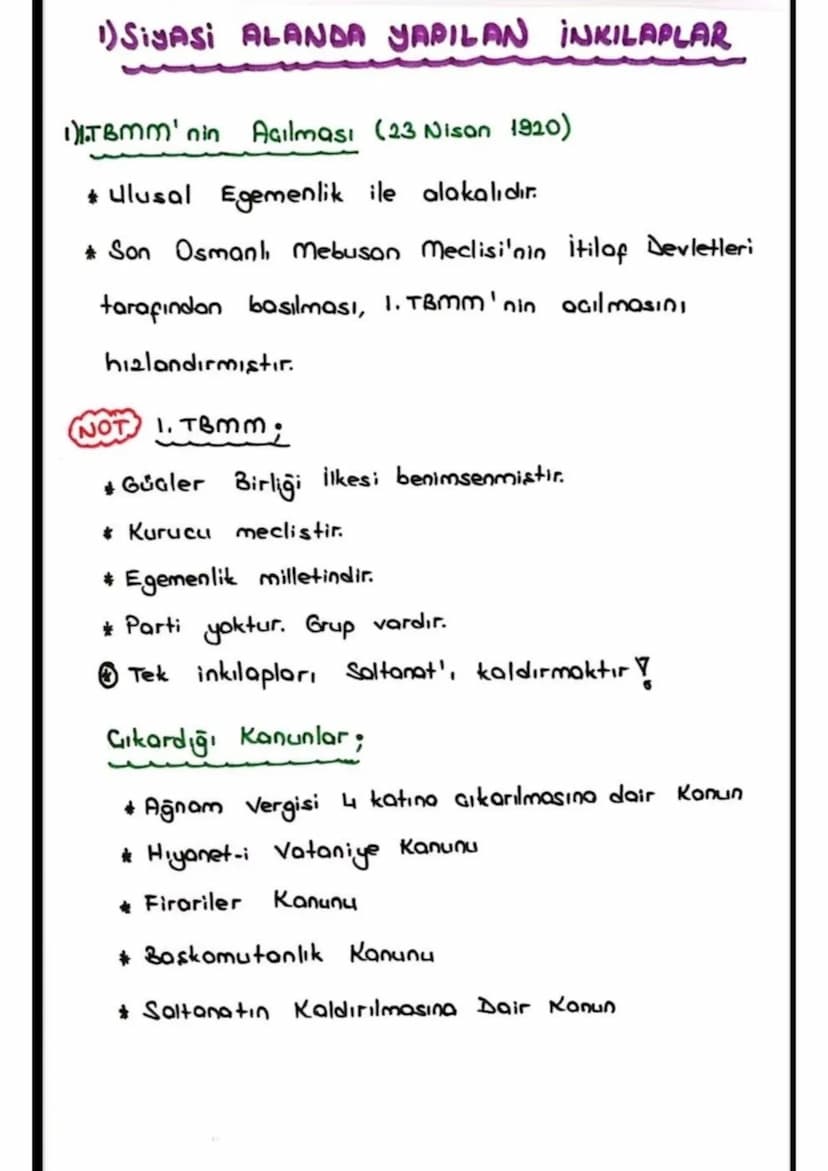 1) SİYASİ ALANDA YAPILAN İNKILAPLAR
1) I.TBMM'nin Açılması (23 Nisan 1920)
* Ulusal Egemenlik ile alakalıdır.
* Son Osmanlı Mebusan Meclisi'nin İtilaf Devletleri
tarafından basılması, 1. TBMM'nin açılmasını
hızlandırmıştır.
NOT 1. TBMM;
* Güçler Birliği İlkesi benimsenmiştir.
* Kurucu meclistir.
* Egemenlik milletindir.
* Parti yoktur. Grup vardır.
* Tek inkılapları Saltanat'ı kaldırmaktır!
Çıkardığı Kanunlar;
* Ağnam Vergisi 4 katına çıkarılmasına dair Kanun
* Hıyanet-i Vataniye Kanunu
* Firariler Kanunu
* Başkomutanlık Kanunu
* Saltanatın Kaldırılmasına Dair Kanun